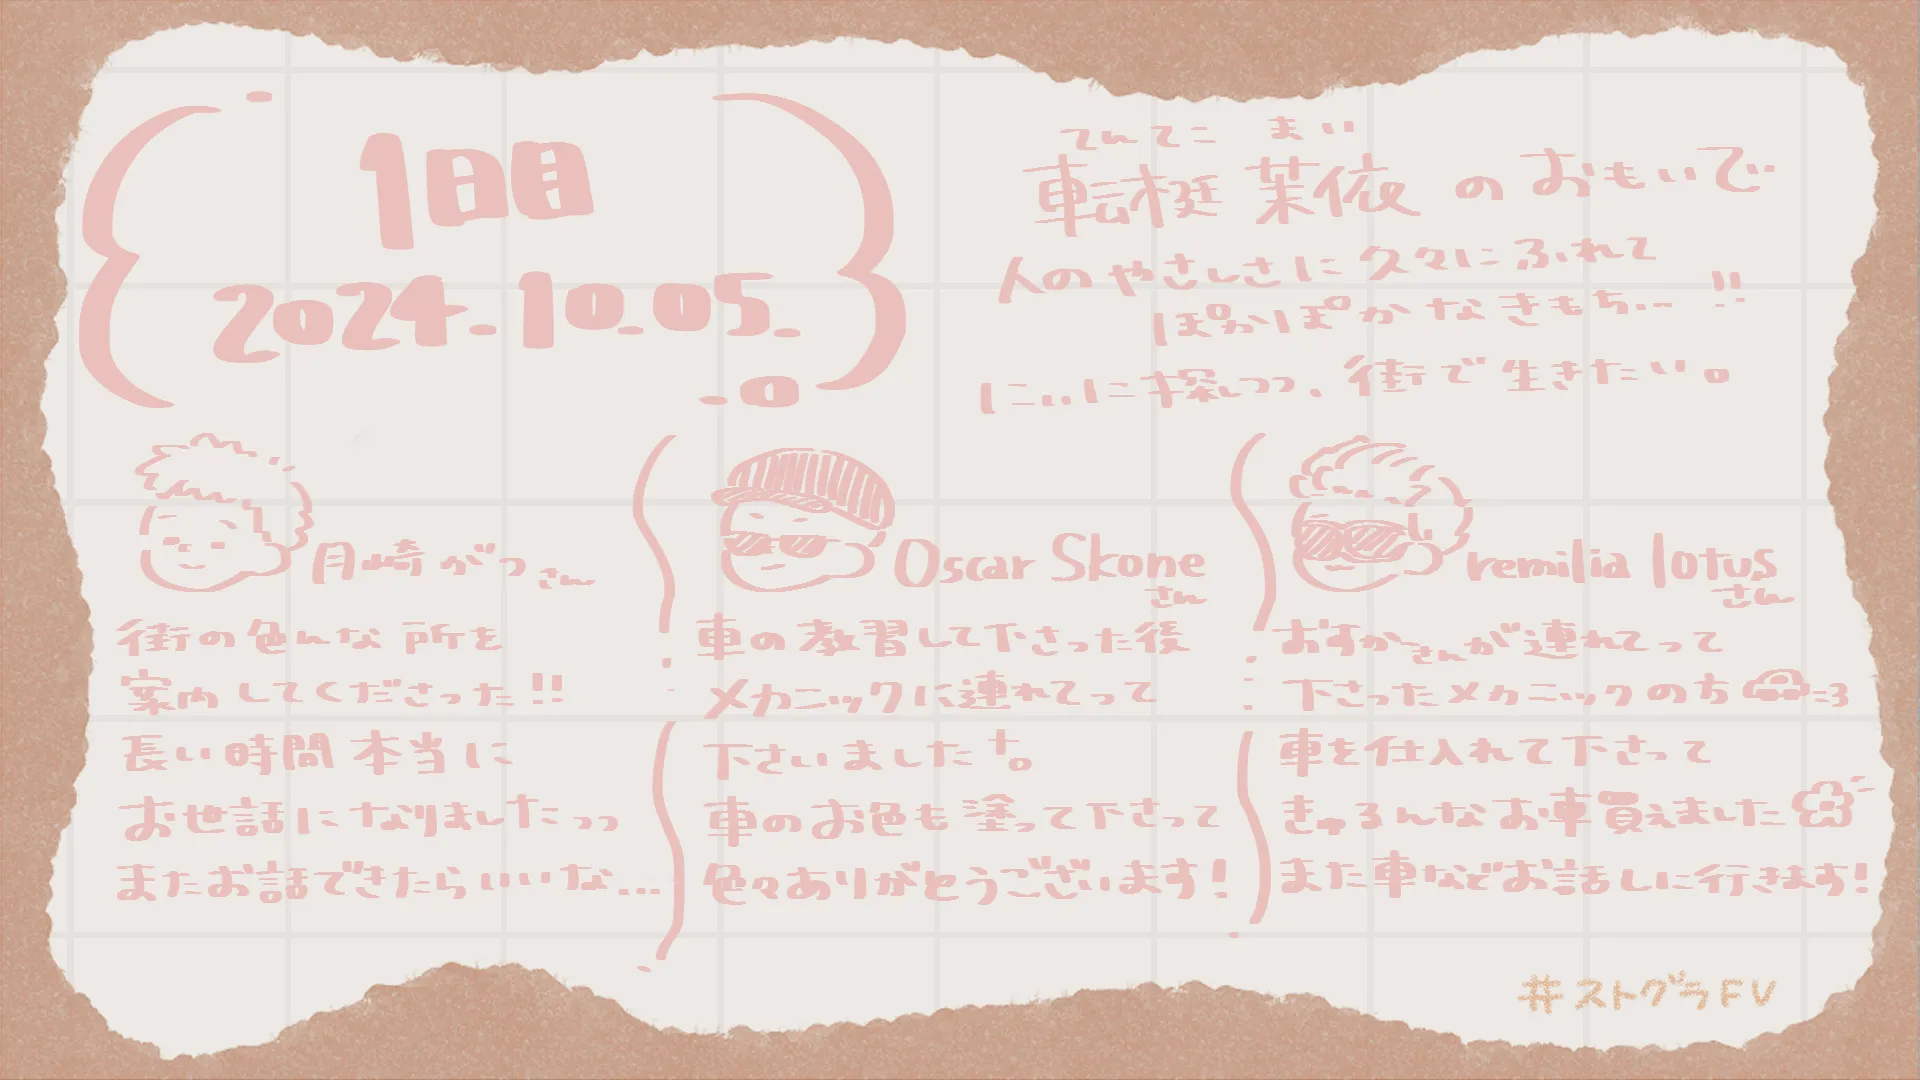 1日目
2024.10.05.
てんてこ まい
転梃 茉依 のおもいで
人のやさしさに久々にふれて
ぽかぽかなきもち...!!
にぃに探しつつ、街で生きたい。
月崎がつさん
街の色んな所を
案内してくださった!!
長い時間本当に
お世話になりましたっっ
またお話できたらいいな...
Oscar Skone
さん
車の教習して下さった後
メカニックに連れてって
下さいました。
車のお色も塗って下さって
色々ありがとうございます!
remilia lotus
さん
おすかさんが連れてって
下さったメカニックの方
車を仕入れて下さって
きゅろんなお車買えました
また車などお話しに行きます!
#ストグラFV